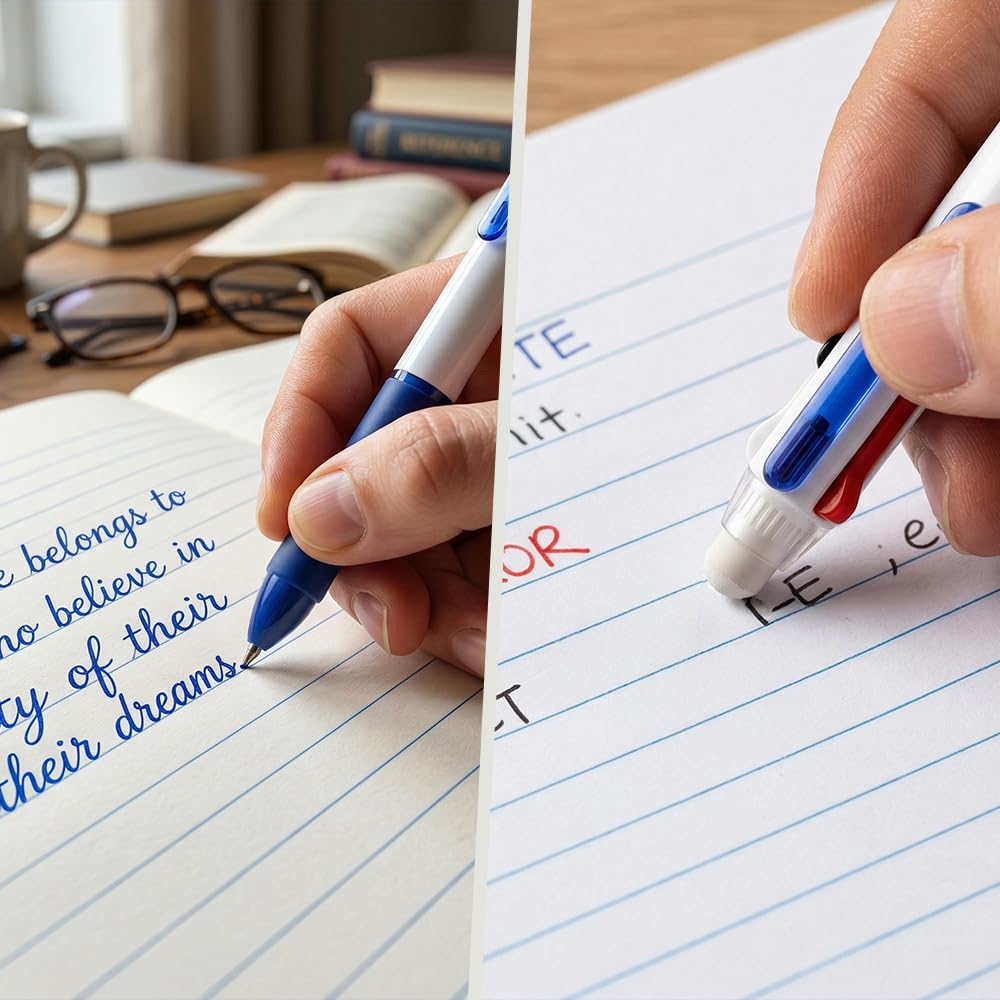 e belongs to
no believe in
ty of their
their dreams.
REFERENCE
TE
nit.
OR
-E ; e
CT